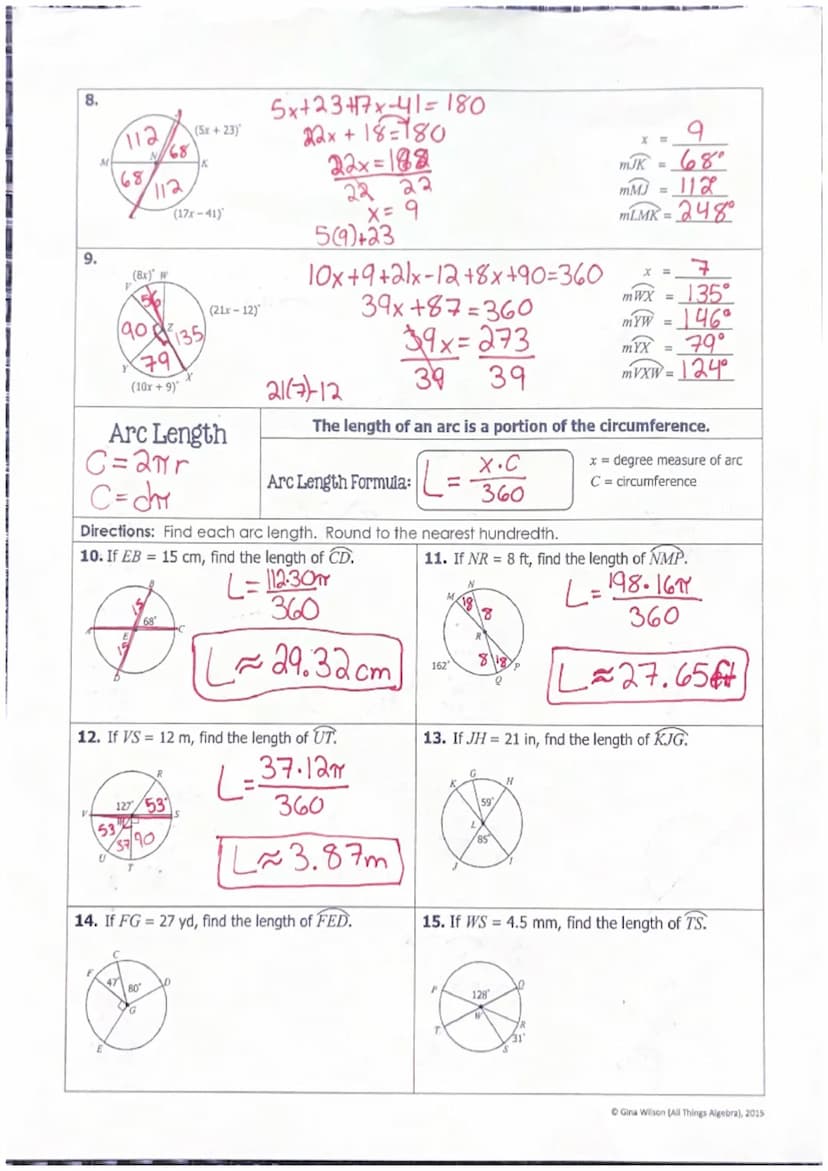 8.
5x+23+17x-41=180
22x + 18=180
22x=198
22 22
x= 9
5(9)+23
112
68
68
112
M
N
K
(5x + 23)°
(17x – 41)°
x = 9
mJK = 68°
mMJ = 112
mLMK = 248°
9.
(8x)° W
V
56
(21x – 12)°
90
Z
135
Y
79
X
(10x + 9)°
21(7)-12
10x+9+21x-12+8x+90=360
39x+87=360
39x= 273
39 39
x = 7
mWX = 135°
mYW = 146°
mYX = 79°
mVXW = 124°
Arc Length
C=2πr
C=dπ
The length of an arc is a portion of the circumference.
Arc Length Formula:
L= x·C
360
x = degree measure of arc
C = circumference
Directions: Find each arc length. Round to the nearest hundredth.
10. If EB = 15 cm, find the length of CD.
B
15
68°
A
C
E
15
D
L= 112·30π
360
L≈29.32cm
11. If NR = 8 ft, find the length of NMP.
N
M
18
8
R
8
18
P
162°
Q
L= 198·16π
360
L≈27.65ft
12. If VS = 12 m, find the length of UT.
R
127°
53°
V
S
53
37
90
U
T
L= 37·12π
360
L≈3.87m
13. If JH = 21 in, fnd the length of KJG.
G
K
H
59°
L
85°
J
I
14. If FG = 27 yd, find the length of FED.
C
F
47°
80°
D
G
E
15. If WS = 4.5 mm, find the length of TS.
P
128°
Q
W
T
R
31°
S
© Gina Wilson (All Things Algebra), 2015